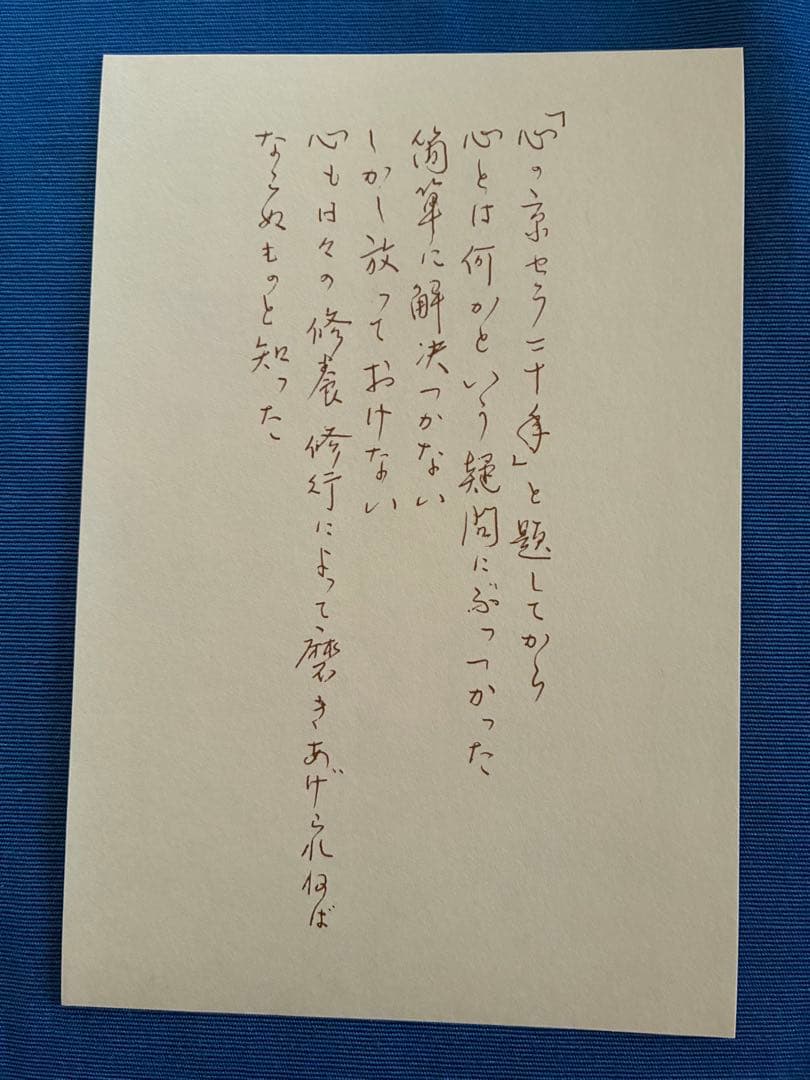 「心の京セラ二十年」と題してから
心とは何かという疑問にぶっつかった
簡単に解決つかない
しかし放っておけない
心も日々の修養修行によって磨きあげられねば
ならぬものと知った